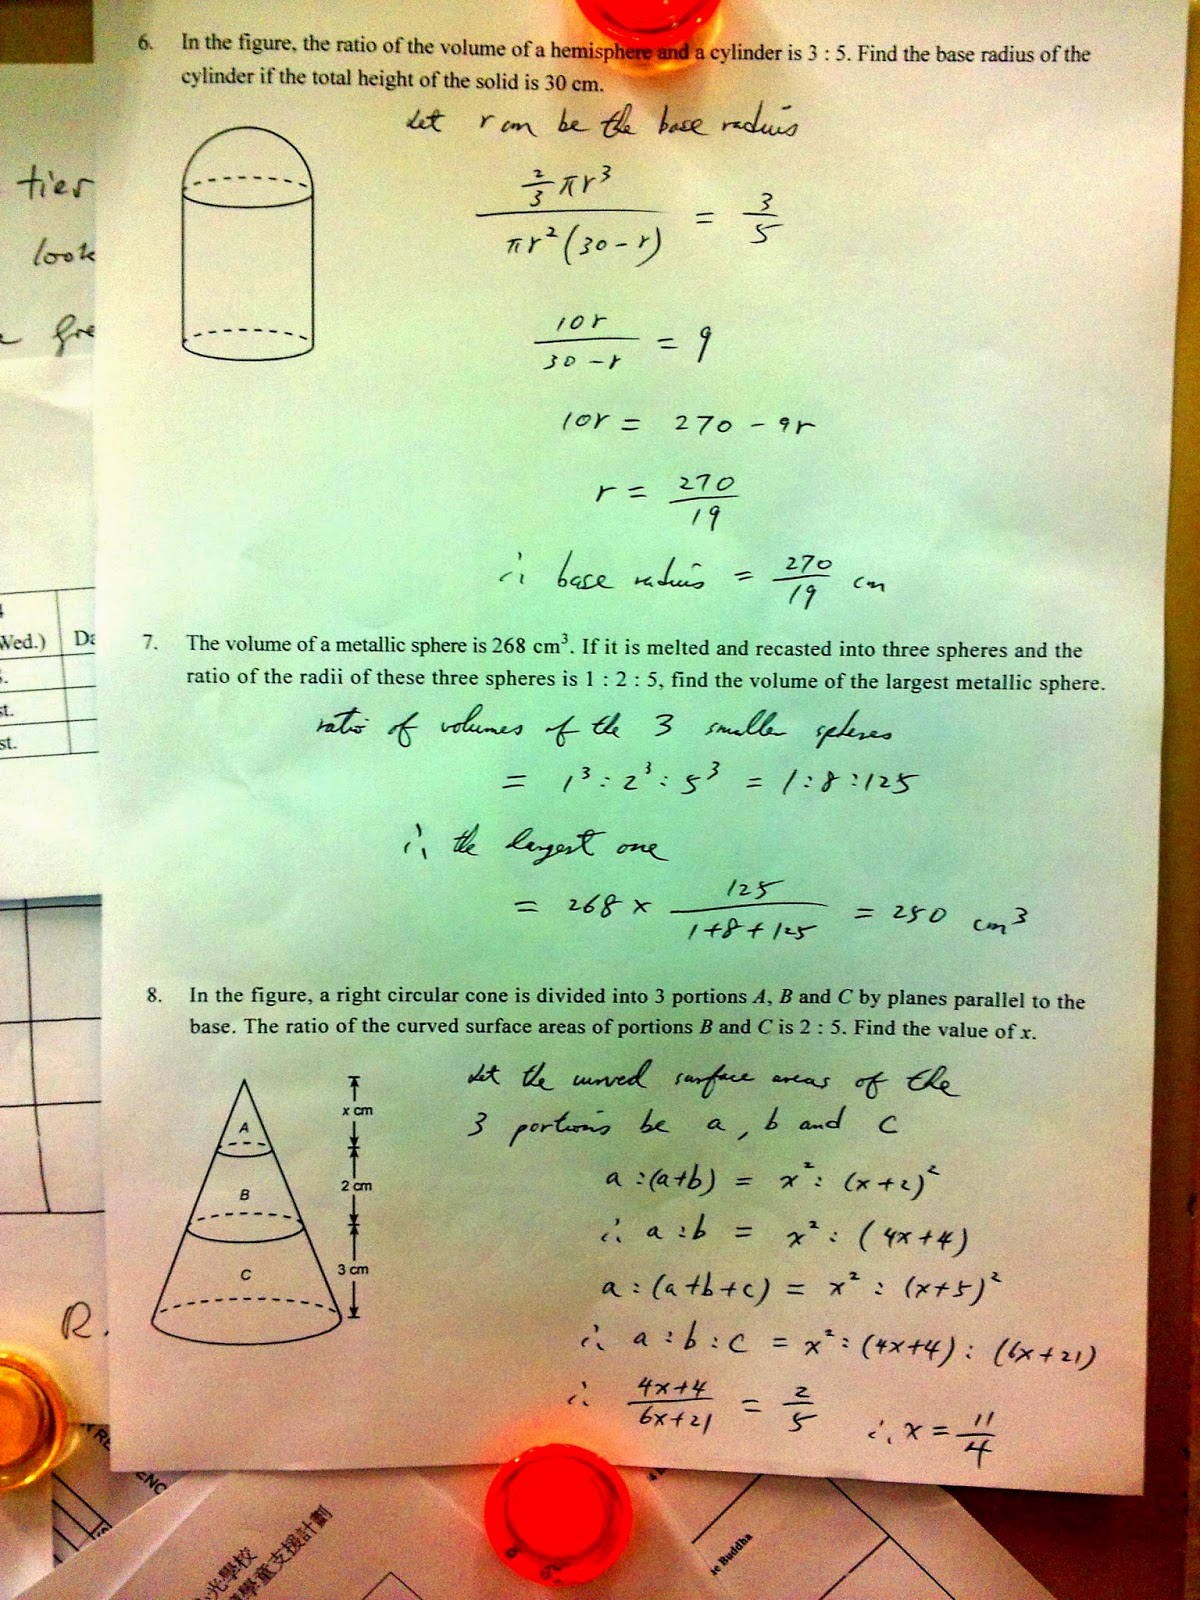 6. In the figure, the ratio of the volume of a hemisphere and a cylinder is 3 : 5. Find the base radius of the
cylinder if the total height of the solid is 30 cm.
Let r cm be the base radius
\frac{\frac{2}{3}πr³}{πr²(30-r)} = \frac{3}{5}
\frac{10r}{30-r} = 9
10r = 270 - 9r
r = \frac{270}{19}
∴ base radius = \frac{270}{19} cm
tier
look
fre
Wed.) Da
st.
st.
7. The volume of a metallic sphere is 268 cm³. If it is melted and recasted into three spheres and the
ratio of the radii of these three spheres is 1 : 2 : 5, find the volume of the largest metallic sphere.
ratio of volumes of the 3 smaller spheres
= 1³ : 2³ : 5³ = 1 : 8 : 125
∴ the largest one
= 268 × \frac{125}{1+8+125} = 250 cm³
8. In the figure, a right circular cone is divided into 3 portions A, B and C by planes parallel to the
base. The ratio of the curved surface areas of portions B and C is 2 : 5. Find the value of x.
A
B
C
x cm
2 cm
3 cm
Let the curved surface areas of the
3 portions be a, b and c
a : (a+b) = x² : (x+2)²
∴ a : b = x² : (4x+4)
a : (a+b+c) = x² : (x+5)²
∴ a : b : c = x² : (4x+4) : (6x+21)
∴ \frac{4x+4}{6x+21} = \frac{2}{5} ∴ x = \frac{11}{4}
R.
ENC
光學校
學童支援計劃
e Buddha